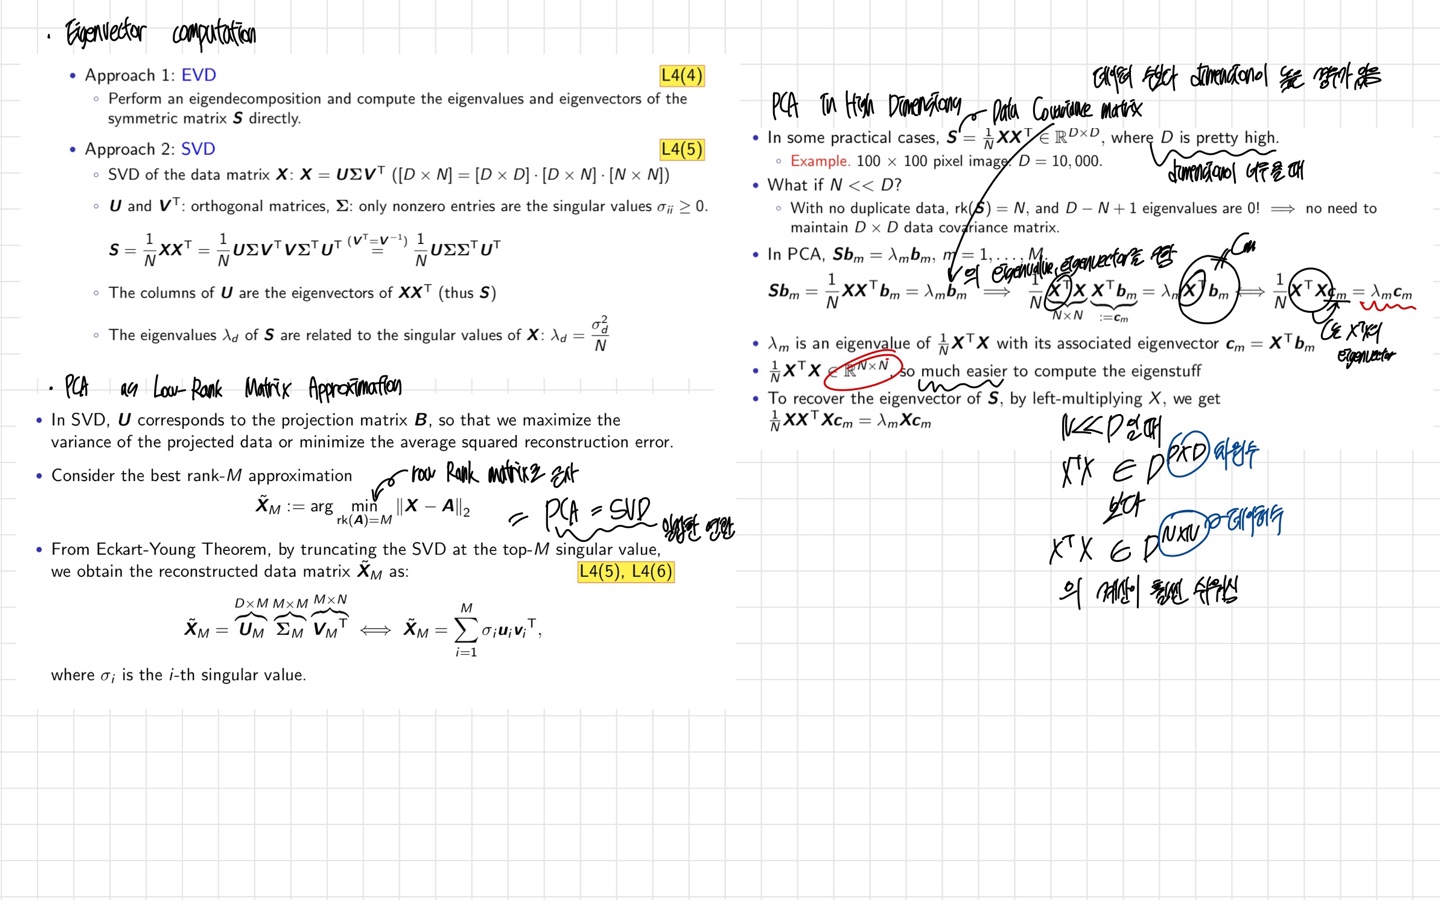 · Eigenvector computation
• Approach 1: EVD L4(4)
◦ Perform an eigendecomposition and compute the eigenvalues and eigenvectors of the
symmetric matrix S directly.
• Approach 2: SVD L4(5)
◦ SVD of the data matrix X: X = UΣVᵀ ([D × N] = [D × D] · [D × N] · [N × N])
◦ U and Vᵀ: orthogonal matrices, Σ: only nonzero entries are the singular values σᵢᵢ ≥ 0.
S = 1/N XXᵀ = 1/N UΣVᵀVΣᵀUᵀ (Vᵀ=V⁻¹) = 1/N UΣΣᵀUᵀ
◦ The columns of U are the eigenvectors of XXᵀ (thus S)
◦ The eigenvalues λ_d of S are related to the singular values of X: λ_d = σ_d²/N
· PCA as Low-Rank Matrix Approximation
• In SVD, U corresponds to the projection matrix B, so that we maximize the
variance of the projected data or minimize the average squared reconstruction error.
• Consider the best rank-M approximation
row Rank matrix로 근사
X̃_M := arg min rk(A)=M ‖X − A‖₂
= PCA = SVD
• From Eckart-Young Theorem, by truncating the SVD at the top-M singular value,
we obtain the reconstructed data matrix X̃_M as: L4(5), L4(6)
D×M M×M M×N
X̃_M = U_M Σ_M V_Mᵀ ⟺ X̃_M = ∑ᵢ₌₁ᴹ σᵢuᵢvᵢᵀ,
where σᵢ is the i-th singular value.
데이터 수보다 dimension이 높은 경우가 있음
PCA in High Dimensions
Data Covariance matrix
• In some practical cases, S = 1/N XXᵀ ∈ ℝ^{D×D}, where D is pretty high.
◦ Example. 100 × 100 pixel image: D = 10,000.
dimension이 너무 클 때
• What if N << D?
◦ With no duplicate data, rk(S) = N, and D − N + 1 eigenvalues are 0! ⟹ no need to
maintain D × D data covariance matrix.
• In PCA, Sb_m = λ_m b_m, m = 1, . . . , M.
의 eigenvalue, eigenvector를 구함
C_m
Sb_m = 1/N XXᵀb_m = λ_m b_m ⟹ 1/N XᵀX Xᵀb_m = λ_m Xᵀb_m ⟺ 1/N XᵀXc_m = λ_m c_m
N×N :=c_m
C는 XᵀX의
eigenvector
• λ_m is an eigenvalue of 1/N XᵀX with its associated eigenvector c_m = Xᵀb_m
• 1/N XᵀX ∈ ℝ^{N×N}, so much easier to compute the eigenstuff
• To recover the eigenvector of S, by left-multiplying X, we get
1/N XXᵀXc_m = λ_m Xc_m
N≪D일 때
XᵀX ∈ D^{D×D} 차원수
보다
XᵀX ∈ D^{N×N} 데이터수
의 계산이 훨씬 쉬워짐